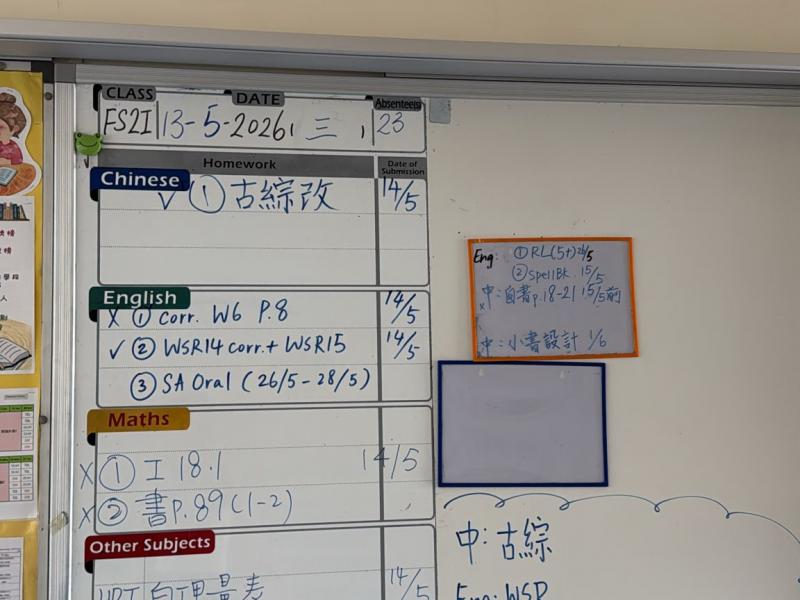 CLASS DATE Absentee(s)
FS2I 13-5-2026, 三, 23
Homework Date of Submission
Chinese
✓ ① 古綜改 14/5
English
x ① corr. W6 P.8 14/5
✓ ② WSR14 corr. + WSR15 14/5
③ SA Oral (26/5 - 28/5)
Maths
X ① I 18.1 14/5
X ② 書P.89(1-2)
Other Subjects
自理量表 14/5
Eng: ① RL(5+) 26/5
② SpellBk. 15/5
中:自書p.18-21 15/5前
x
中:小書設計 1/6
中:古綜
Eng: WSR